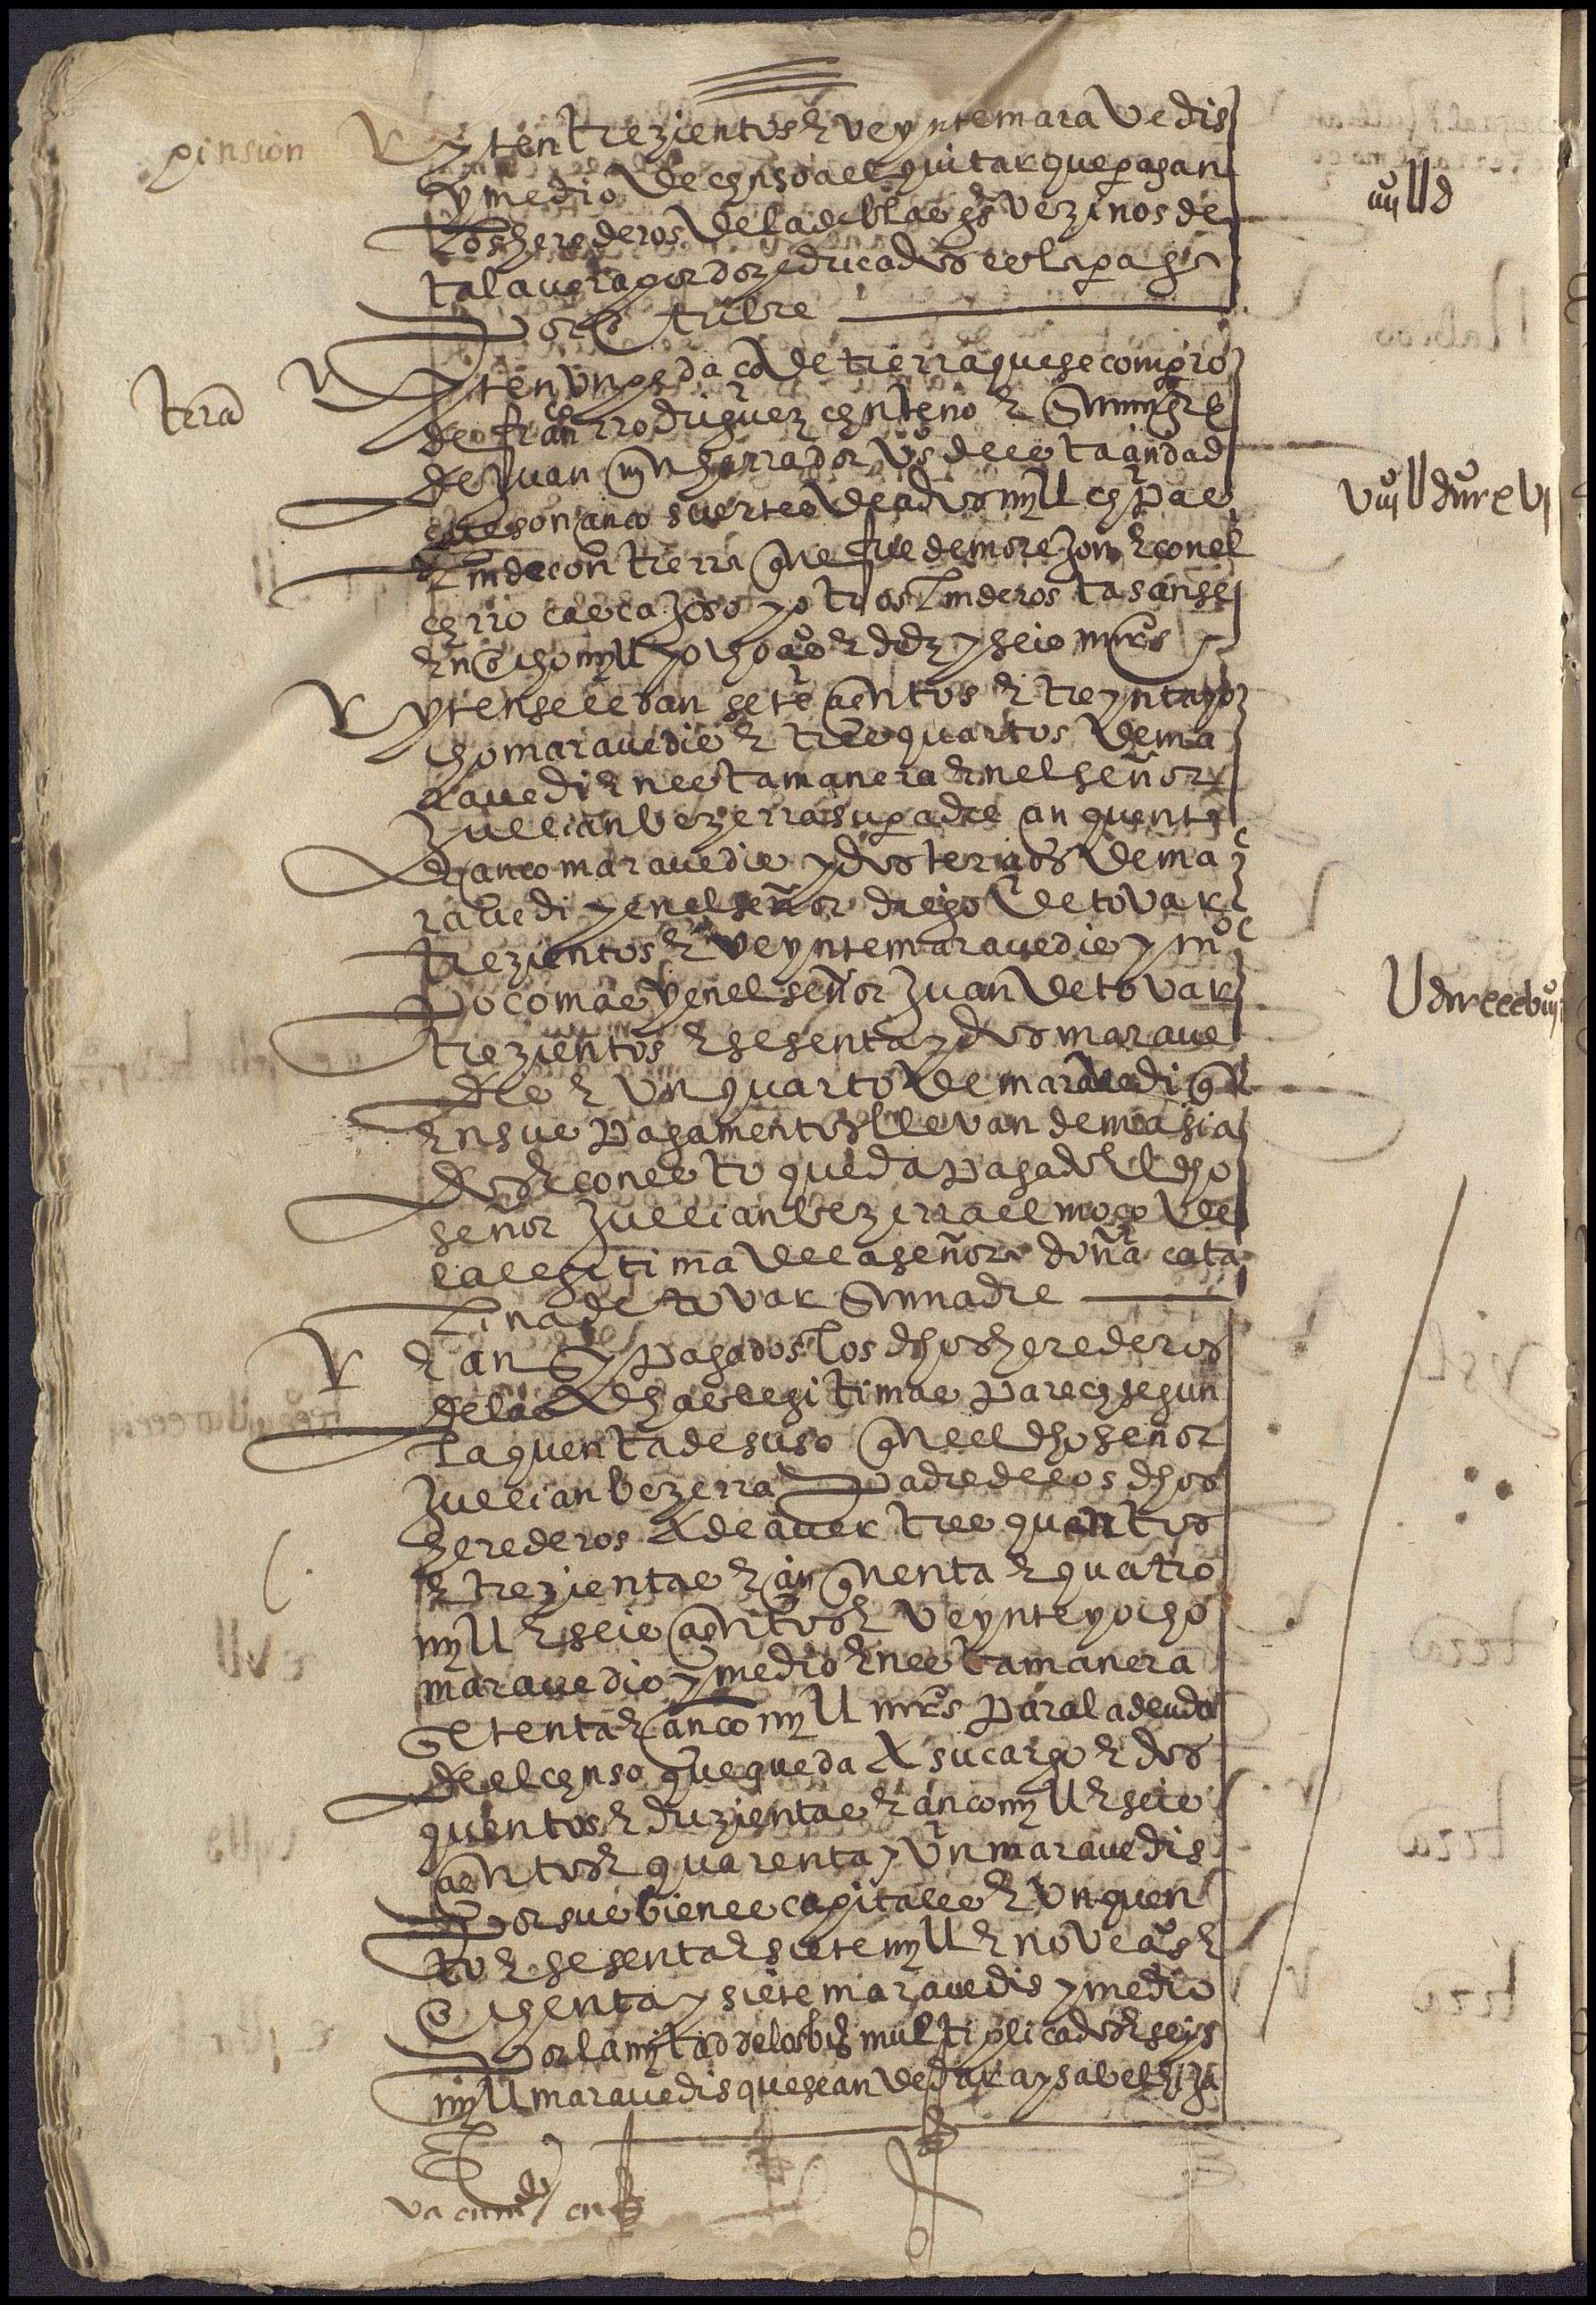 pinsion
yten trezientos e veynte maravedis
y medio de censo al quitar que pagan
los herederos de vezinos de
talavera por doze ducados
por otubre
iiijUd
trra
yten un pedaço de tierra que se compro
de franco rrodriguez centeno e su muger e
de juan mn herrador vos desta cindad
que son cinco suertes de a dos myll cepas
linde con tierra que fue de morejon e con el
cerro cascajoso y otros linderos tasanse
en ocho myll y ochos e diez y seis mrs
viijUdcccxvj
yten se le dan setecientos e treynta y o
cho maravedis e tres quartos de ma
ravedi en esta manera en el señor
Jullian bezerra su padre cinquenta
e cinco maravedis y dos tercios de ma
ravedi y en el señor diego de tovar
trezientos e veynte maravedis y mo
poco mas y en el señor Juan de tovar
trezientos e sesenta y dos marave
dis e un quarto de maravedi que
en sus pagamentos llevan demasia
dos e con esto queda pagado el dho
señor Jullian bezerra el moço de
la legitima de la señora doña cata
lina de tovar su madre
Udccxxxviij
e an sy pagados los dhos herederos
de las dhas legitimas parece segun
la quenta de suso que el dho señor
Jullian bezerra padre de los dhos
herederos a de aver tres quentos
e trezientas e cinquenta e quatro
myll e seiscientos e veynte y ocho
maravedis y medio en esta manera
setenta e cinco myll mrs para la deuda
del censo que queda a su cargo e dos
quentos e duzientas e cinco myll e sete
cientos e quarenta y un maravedis
por sus bienes capitales e un quen
to e sesenta e siete myll e noveos e
ochenta y siete maravedis y medio
por la mytad de los bis multiplicados e seys
myll maravedis que se an de dar a ysabel hija
va enmdo